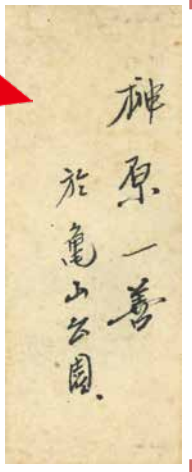 榊原一善
於亀山公園、